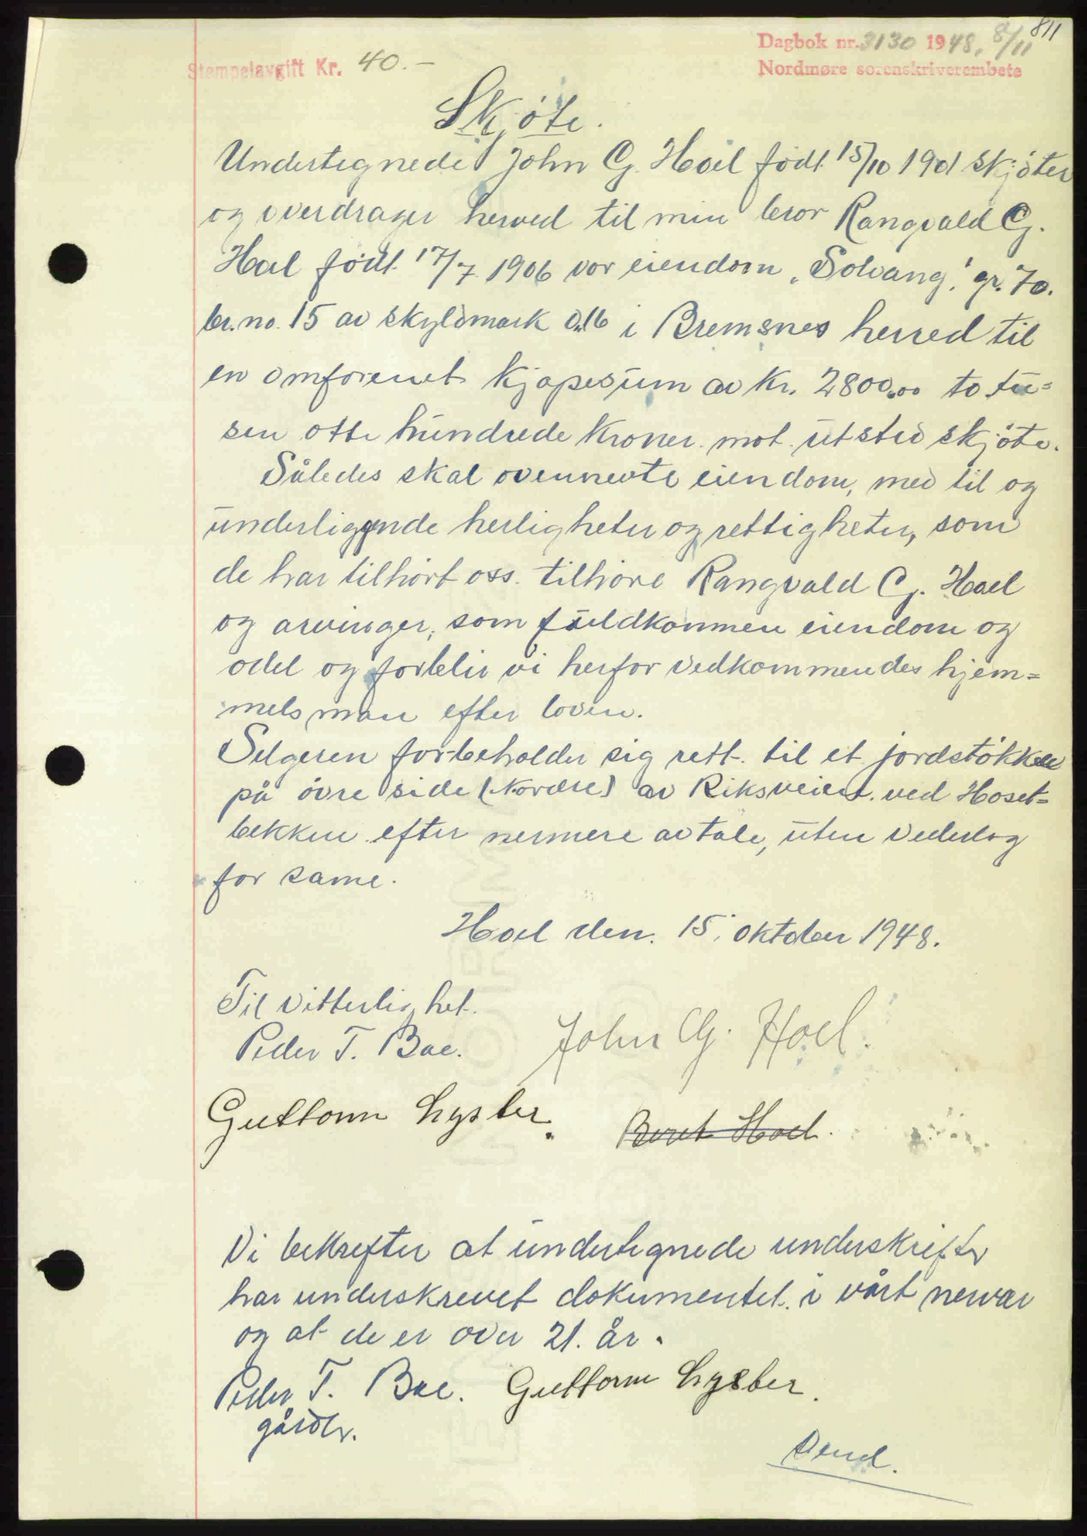 811
Dagbok nr. 3130 1948. 8/11
Stempelavgift Kr. 40.-
Nordmøre sorenskriverembete
Skjöte.
Undertegnede John G. Hoel født 15/10 1901 skjöter
og overdrager herved til min bror Rangvald G.
Hoel født 17/7 1906 vor eiendom "Solvang" gr. 70.
br. no. 15 av skyldmark 0,16 i Bremsnes herred til
en omforenet kjøpesum av Kr. 2800,00 to tu=
sen otte hundrede kroner mot utsted skjöte.
Således skal ovennevte eiendom, med til og
underliggende herligheter og rettigheter, som
de har tilhört oss tilhöre Rangvald G. Hoel
og arvinger, som fuldkommen eiendom og
odel og forblir vi herfor vedkommendes hjem=
melsman efter loven.
Selgeren forbeholder sig rett til et jordstökke
på övre side (Nordre) av Riksveien ved Hoset=
bekken efter nermere avtale, uten vederlag
for same.
Hoel den 15. oktober 1948.
Til vitterlighet.
Peder T. Bae. John G. Hoel.
Guttorm Lysber. Beret Hoel.
Vi bekrefter at undertegnede underskrifter
har underskrevet dokumentet i vårt nervær
og at de er over 21. år.
Peder T. Bae. Guttorm Lysber.
gårdbr.
Vend.